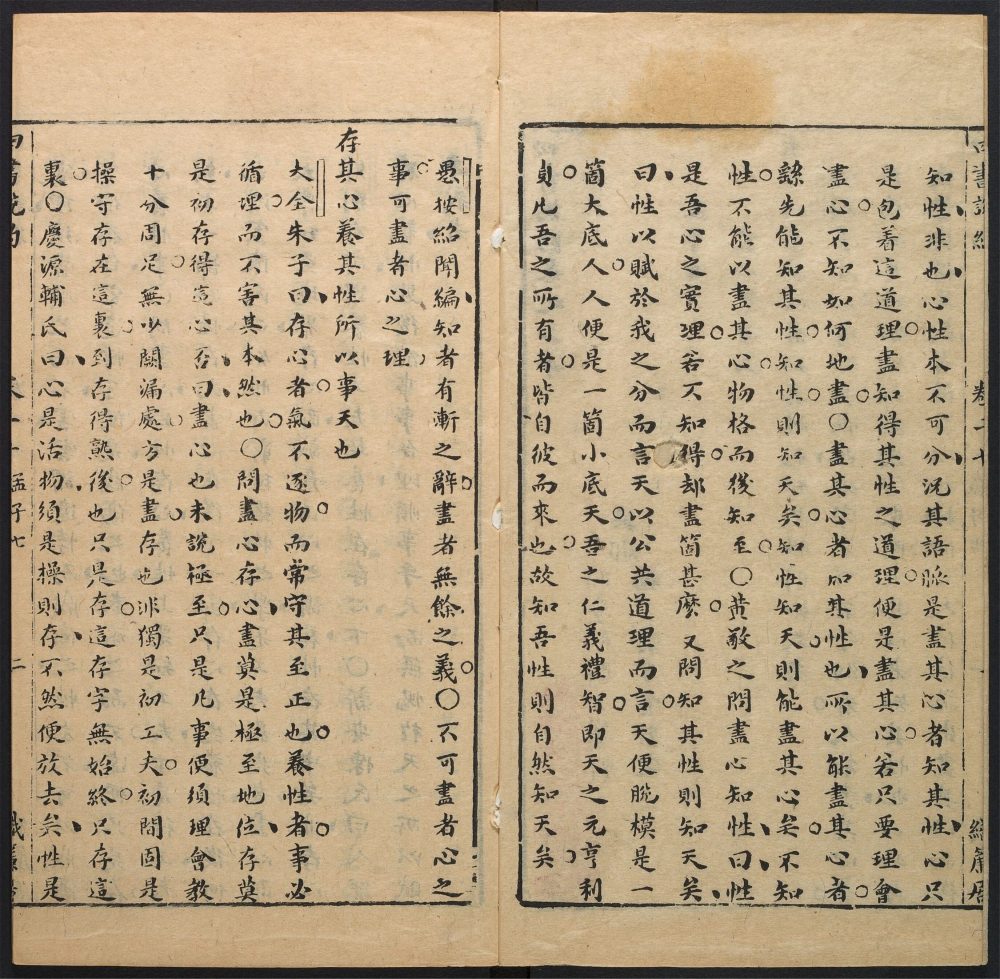 知性非也心性本不可分況其語脈是盡其心者知其性心只
是包着這道理盡知得其性之道理便是盡其心若只要理會
盡心不知如何地盡○盡其心者知其性也所以能盡其心者
繇先能知其性知性則知天矣知性知天則能盡其心矣不知
性不能以盡其心物格而後知至○黃敬之問盡心知性曰性
是吾心之實理若不知得却盡箇甚麽又問知其性則知天矣
曰性以賦於我之分而言天以公共道理而言天便脫模是一
箇大底人人便是一箇小底天吾之仁義禮智即天之元亨利
貞凡吾之所有者皆自彼而來也故知吾性則自然知天矣
愚按紹聞編知者有漸之辭盡者無餘之義○不可盡者心之
事可盡者心之理
存其心養其性所以事天也
大全朱子曰存心者氣不逐物而常守其至正也養性者事必
循理而不害其本然也○問盡心存心盡莫是極至地位存莫
是初存得這心否曰盡心也未說極至只是凡事便須理會教
十分周足無少闕漏處方是盡存也非獨是初工夫初間固是
操守存在這裏到存得熟後也只是存這存字無始終只存這
裏○慶源輔氏曰心是活物須是操則存不然便放去矣性是
卷二十 孟子七 二